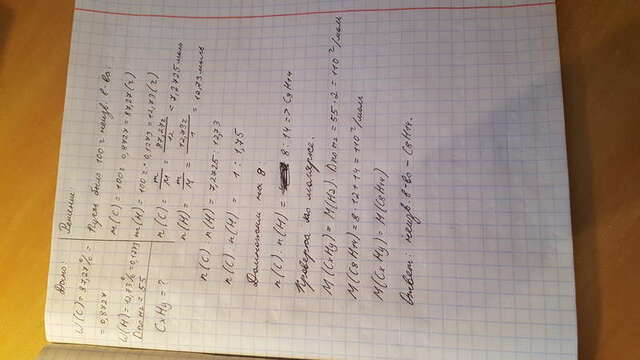 Дано:
W(C) = 87,27% =
= 0,8727
W(H) = 12,73% = 0,1273
D по H2 = 55
CxHy = ?
Решение:
Пусть было 100 г неизв. в-ва:
m(C) = 100г · 0,8727 = 87,27 (г)
m(H) = 100г · 0,1273 = 12,73 (г)
n(C) = m/M = 87,27г/12 = 7,2725 моль
n(H) = m/M = 12,73г/1 = 12,73 моль
n(C) : n(H) = 7,2725 : 12,73
n(C) : n(H) = 1 : 1,75
Домножим на 8:
n(C) : n(H) = 8 : 14 => C8H14
Проверка по молярке.
M(CxHy) = M(H2) · D по H2 = 55 · 2 = 110 г/моль
M(C8H14) = 8 · 12 + 14 = 110 г/моль
M(CxHy) = M(C8H14)
Ответ: неизв. в-во – C8H14.